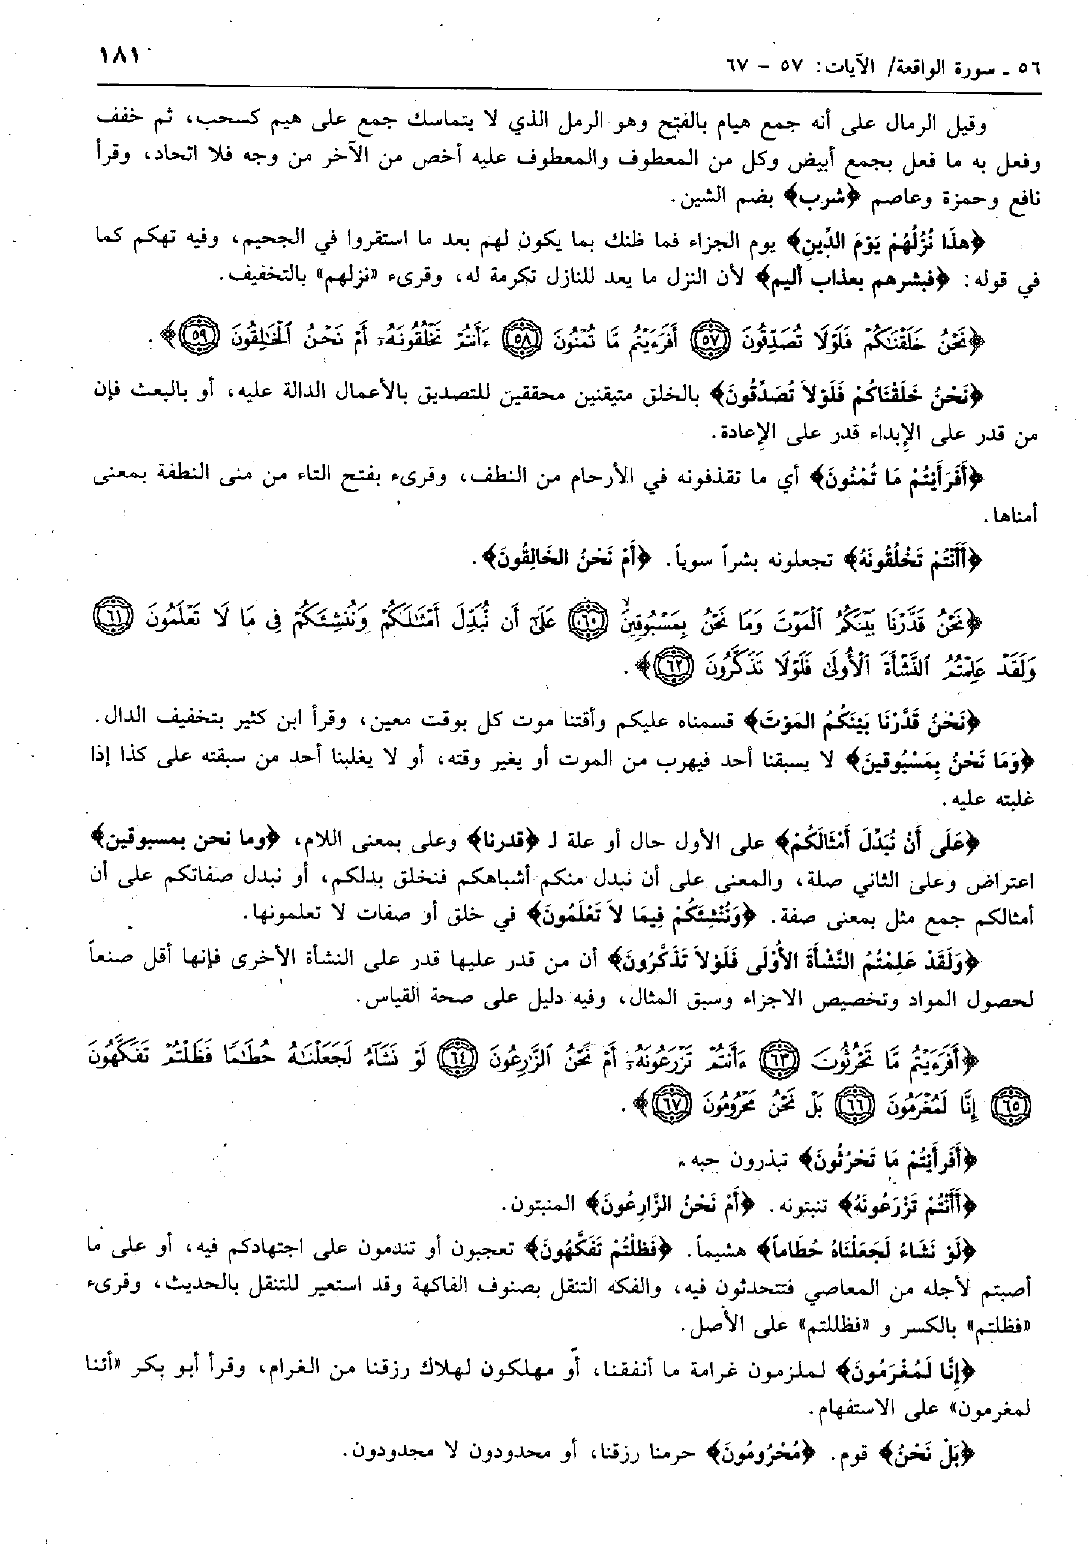 ٥٦ ـ سورة الواقعة/ الآيات: ٥٧ - ٦٧
١٨١
وقيل الرمال على أنه جمع هيام بالفتح وهو الرمل الذي لا يتماسك جمع على هيم كسحب، ثم خفف
وفعل به ما فعل بجمع أبيض وكل من المعطوف والمعطوف عليه أخص من الآخر من وجه فلا اتحاد، وقرأ
نافع وحمزة وعاصم ﴿شرب﴾ بضم الشين.
﴿هذَا نُزُلُهُمْ يَوْمَ الدِّينِ﴾ يوم الجزاء فما ظنك بما يكون لهم بعد ما استقروا في الجحيم، وفيه تهكم كما
في قوله: ﴿فبشرهم بعذاب أليم﴾ لأن النزل ما يعد للنازل تكرمة له، وقرىء «نزلهم» بالتخفيف.
﴿نَحْنُ خَلَقْنَٰكُمْ فَلَوْلَا تُصَدِّقُونَ ﴿٥٧﴾ أَفَرَءَيْتُم مَّا تُمْنُونَ ﴿٥٨﴾ ءَأَنتُمْ تَخْلُقُونَهُۥٓ أَمْ نَحْنُ ٱلْخَٰلِقُونَ ﴿٥٩﴾﴾.
﴿نَحْنُ خَلَقْنَاكُمْ فَلَوْلاَ تُصَدِّقُونَ﴾ بالخلق متيقنين محققين للتصديق بالأعمال الدالة عليه، أو بالبعث فإن
من قدر على الإبداء قدر على الإعادة.
﴿أَفَرَأَيْتُمْ مَا تُمْنُونَ﴾ أي ما تقذفونه في الأرحام من النطف، وقرىء بفتح التاء من منى النطفة بمعنى
أمناها.
﴿أَأَنْتُمْ تَخْلُقُونَهُ﴾ تجعلونه بشراً سوياً. ﴿أَمْ نَحْنُ الخَالِقُونَ﴾.
﴿نَحْنُ قَدَّرْنَا بَيْنَكُمُ ٱلْمَوْتَ وَمَا نَحْنُ بِمَسْبُوقِينَ ﴿٦٠﴾ عَلَىٰٓ أَن نُّبَدِّلَ أَمْثَٰلَكُمْ وَنُنشِئَكُمْ فِى مَا لَا تَعْلَمُونَ ﴿٦١﴾
وَلَقَدْ عَلِمْتُمُ ٱلنَّشْأَةَ ٱلْأُولَىٰ فَلَوْلَا تَذَكَّرُونَ ﴿٦٢﴾﴾.
﴿نَحْنُ قَدَّرْنَا بَيْنَكُمُ المَوْتَ﴾ قسمناه عليكم وأقتنا موت كل بوقت معين، وقرأ ابن كثير بتخفيف الدال.
﴿وَمَا نَحْنُ بِمَسْبُوقِينَ﴾ لا يسبقنا أحد فيهرب من الموت أو يغير وقته، أو لا يغلبنا أحد من سبقته على كذا إذا
غلبته عليه.
﴿عَلَى أَنْ نُبَدِّلَ أَمْثَالَكُمْ﴾ على الأول حال أو علة لـ ﴿قدرنا﴾ وعلى بمعنى اللام، ﴿وما نحن بمسبوقين﴾
اعتراض وعلى الثاني صلة، والمعنى على أن نبدل منكم أشباهكم فنخلق بدلكم، أو نبدل صفاتكم على أن
أمثالكم جمع مثل بمعنى صفة. ﴿وَنُنْشِئَكُمْ فِيمَا لاَ تَعْلَمُونَ﴾ في خلق أو صفات لا تعلمونها.
﴿وَلَقَدْ عَلِمْتُمُ النَّشْأَةَ الأُوْلَى فَلَوْلاَ تَذَكَّرُونَ﴾ أن من قدر عليها قدر على النشأة الأخرى فإنها أقل صنعاً
لحصول المواد وتخصيص الاجزاء وسبق المثال، وفيه دليل على صحة القياس.
﴿أَفَرَءَيْتُم مَّا تَحْرُثُونَ ﴿٦٣﴾ ءَأَنتُمْ تَزْرَعُونَهُۥٓ أَمْ نَحْنُ ٱلزَّٰرِعُونَ ﴿٦٤﴾ لَوْ نَشَآءُ لَجَعَلْنَٰهُ حُطَٰمًا فَظَلْتُمْ تَفَكَّهُونَ
﴿٦٥﴾ إِنَّا لَمُغْرَمُونَ ﴿٦٦﴾ بَلْ نَحْنُ مَحْرُومُونَ ﴿٦٧﴾﴾.
﴿أَفَرَأَيْتُمْ مَا تَحْرُثُونَ﴾ تبذرون حبه.
﴿أَأَنْتُمْ تَزْرَعُونَهُ﴾ تنبتونه. ﴿أَمْ نَحْنُ الزَّارِعُونَ﴾ المنبتون.
﴿لَوْ نَشَاءُ لَجَعَلْنَاهُ حُطَاماً﴾ هشيماً. ﴿فَظَلْتُمْ تَفَكَّهُونَ﴾ تعجبون أو تندمون على اجتهادكم فيه، أو على ما
أصبتم لأجله من المعاصي فتتحدثون فيه، والفكه التنقل بصنوف الفاكهة وقد استعير للتنقل بالحديث، وقرىء
«فظلتم» بالكسر و «فظللتم» على الأصل.
﴿إِنَّا لَمُغْرَمُونَ﴾ لملزمون غرامة ما أنفقنا، أو مهلكون لهلاك رزقنا من الغرام، وقرأ أبو بكر «أئنا
لمغرمون» على الاستفهام.
﴿بَلْ نَحْنُ﴾ قوم. ﴿مَحْرُومُونَ﴾ حرمنا رزقنا، أو محدودون لا مجدودون.